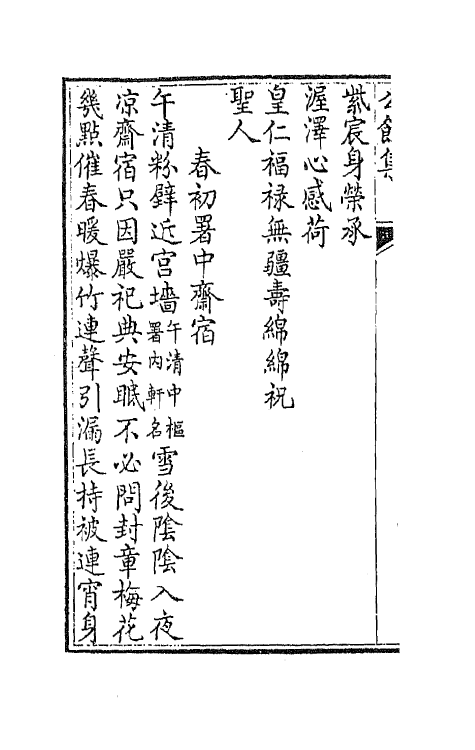 公餘集
紫宸身榮承
渥澤心感荷
皇仁福祿無疆壽綿綿祝
聖人
春初署中齋宿
午清粉壁近宮墻午清中樞署內軒名雪後陰陰入夜
凉齋宿只因嚴祀典安眠不必問封章梅花
幾點催春暖爆竹連聲引漏長持被連宵身